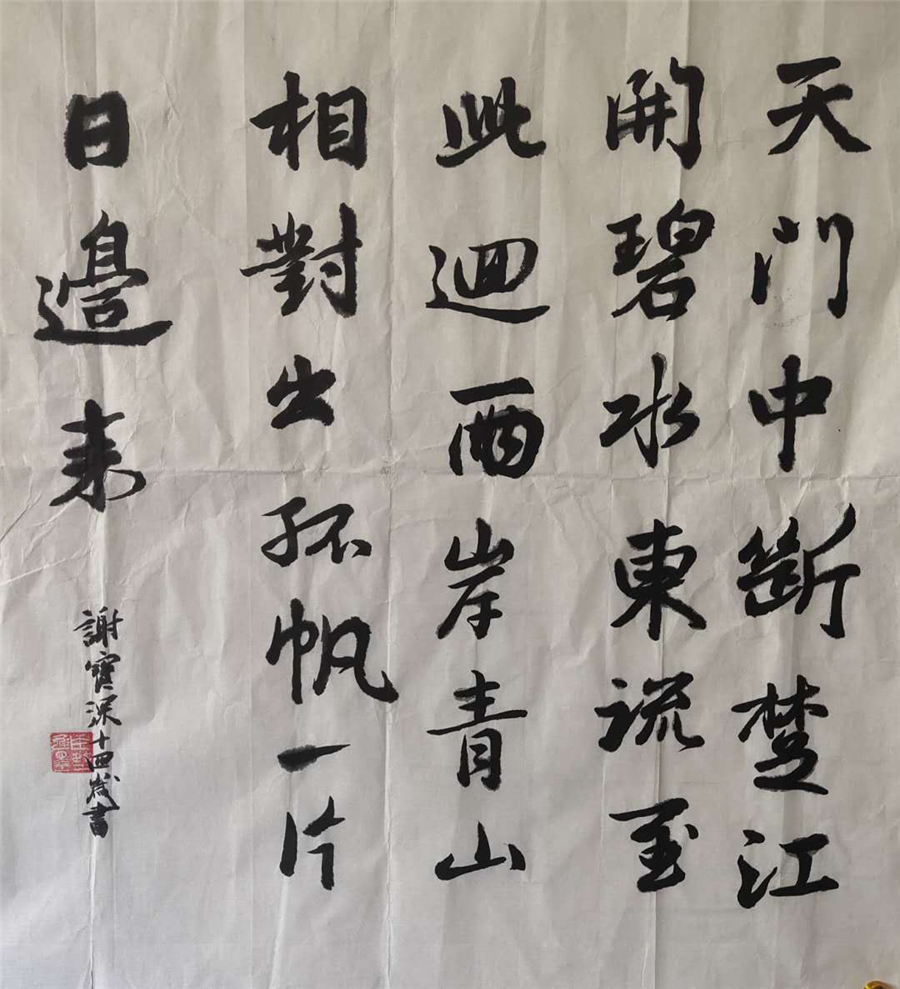 天门中斷楚江
開碧水東流至
此迴兩岸青山
相對出孤帆一片
日邊来
謝寶深十四歲書